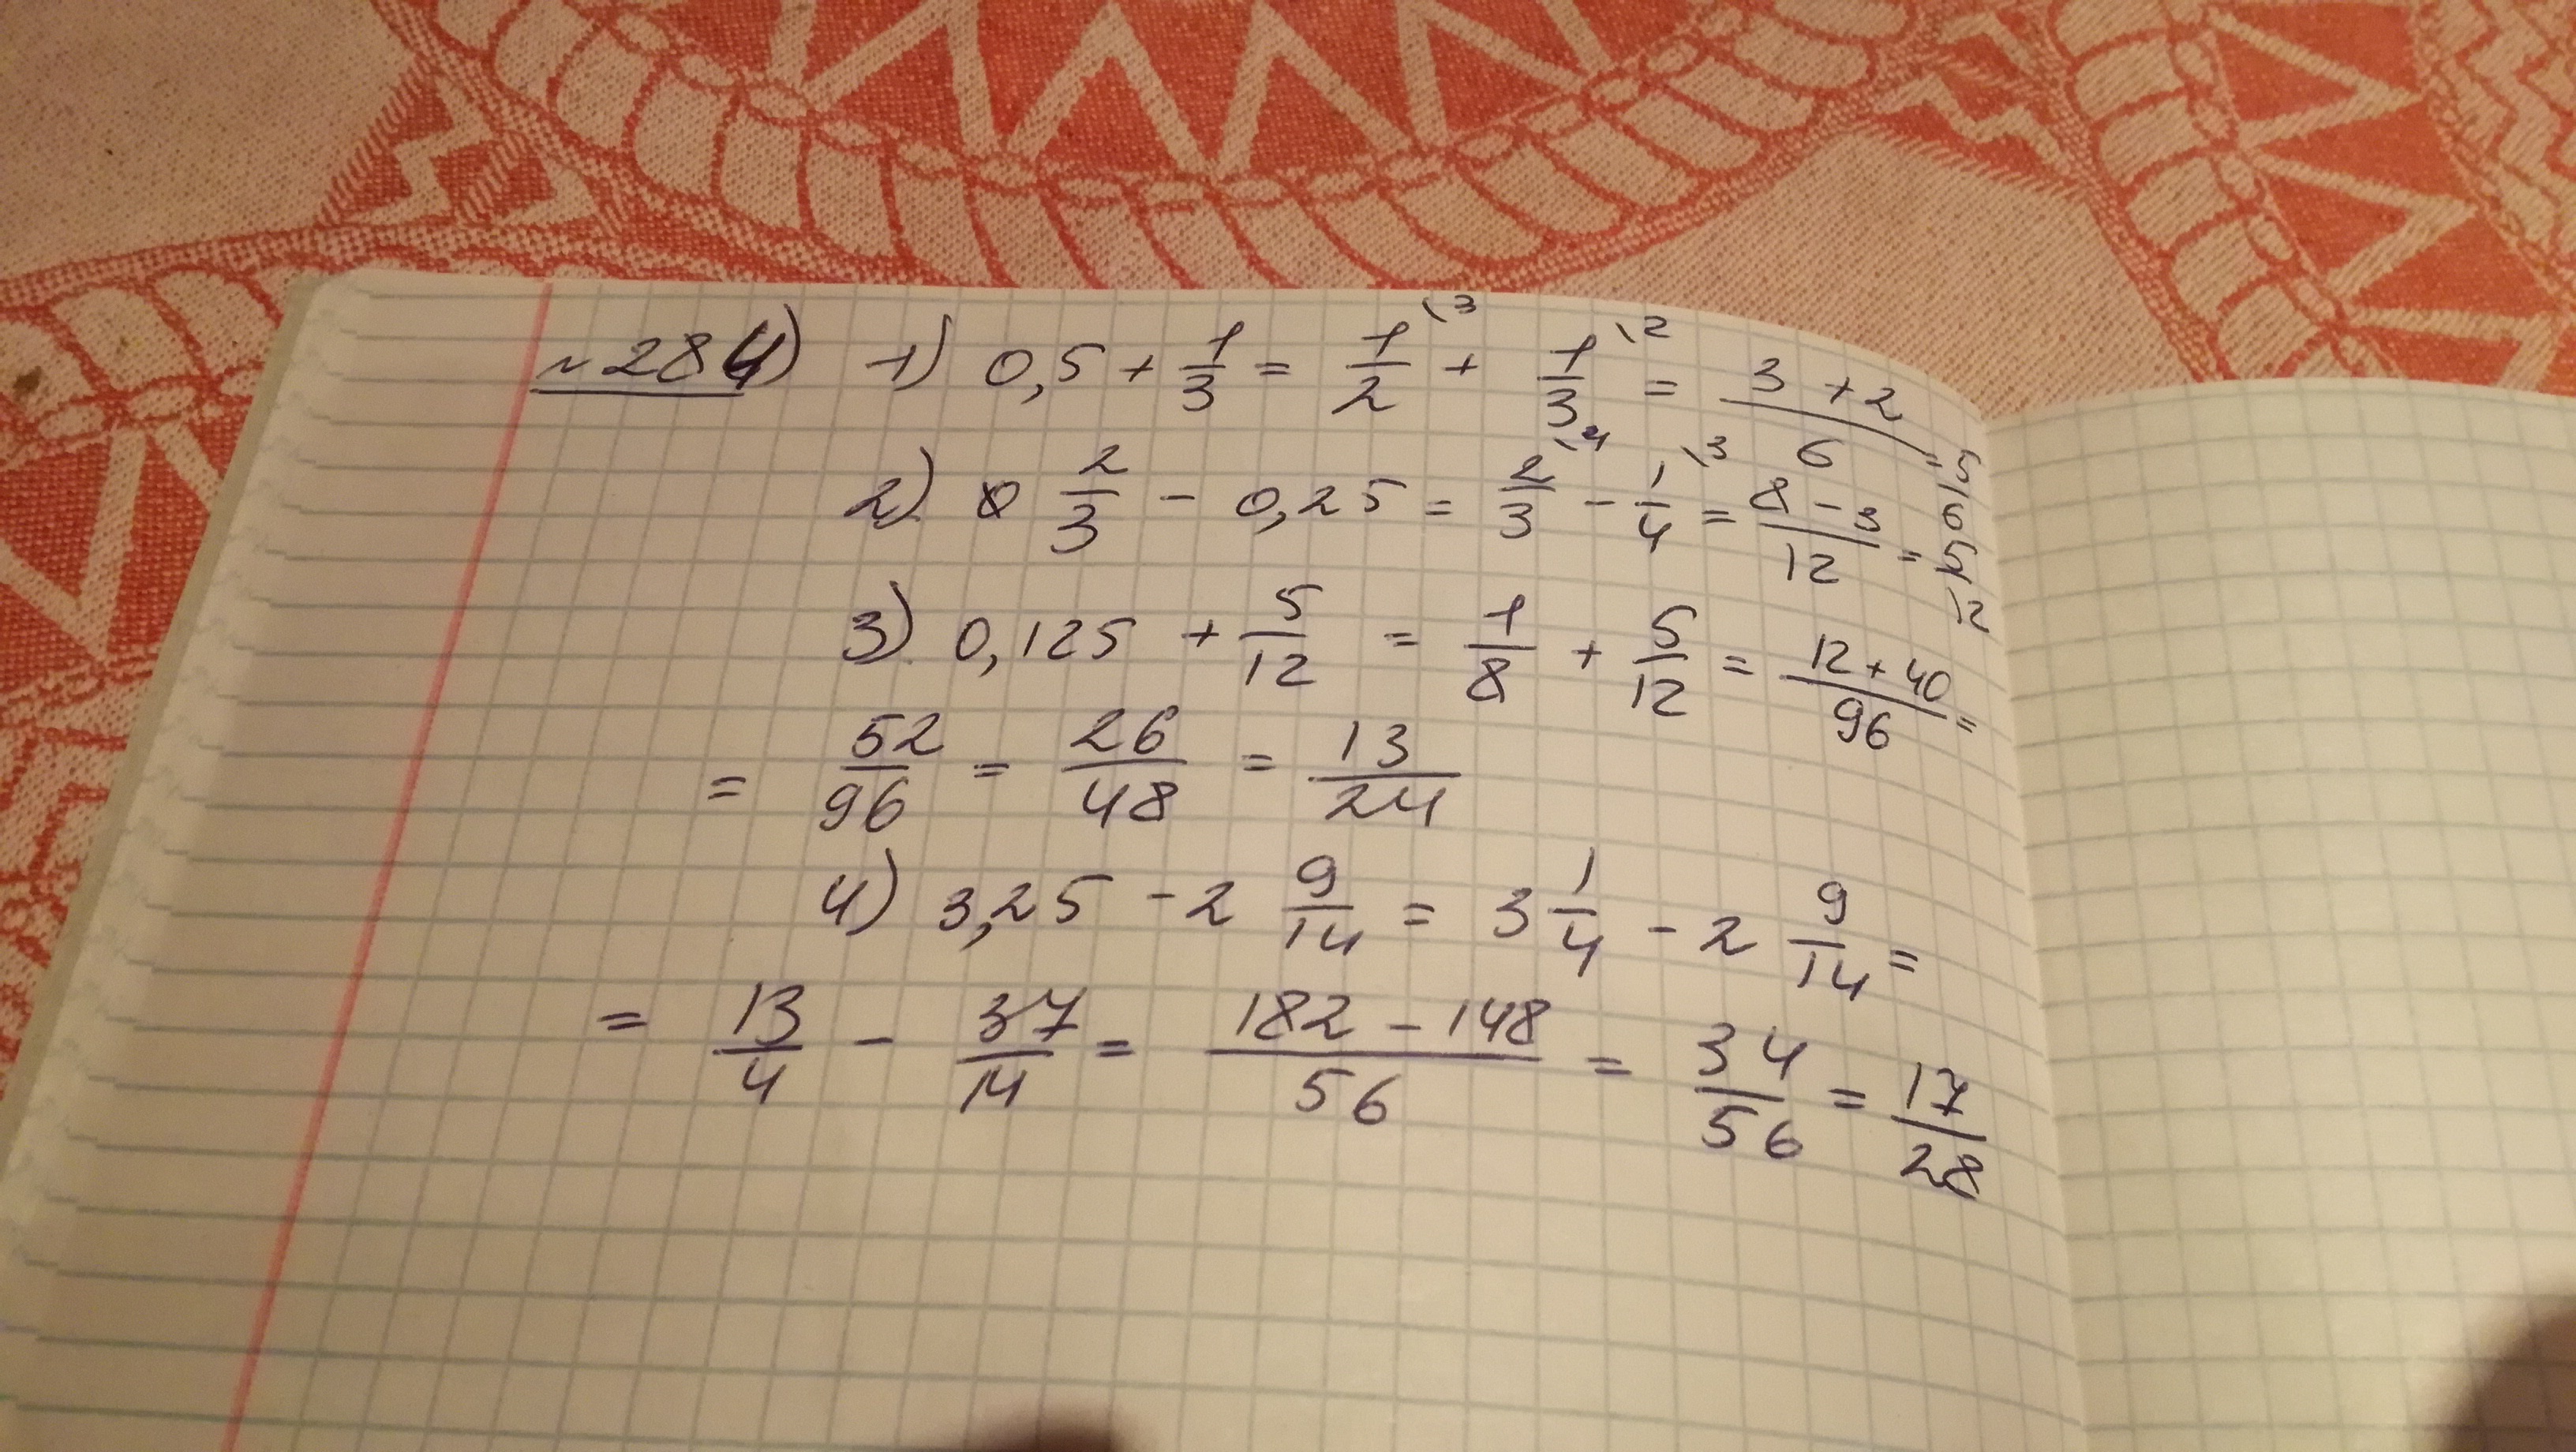 №284) 1) 0,5 + 1/3 = 1/2 \3 + 1/3 \2 = (3 + 2)/6 = 5/6
2) 2/3 - 0,25 = 2/3 \4 - 1/4 \3 = (8 - 3)/12 = 5/12
3) 0,125 + 5/12 = 1/8 + 5/12 = (12 + 40)/96 =
= 52/96 = 26/48 = 13/24
4) 3,25 - 2 9/14 = 3 1/4 - 2 9/14 =
= 13/4 - 37/14 = (182 - 148)/56 = 34/56 = 17/28